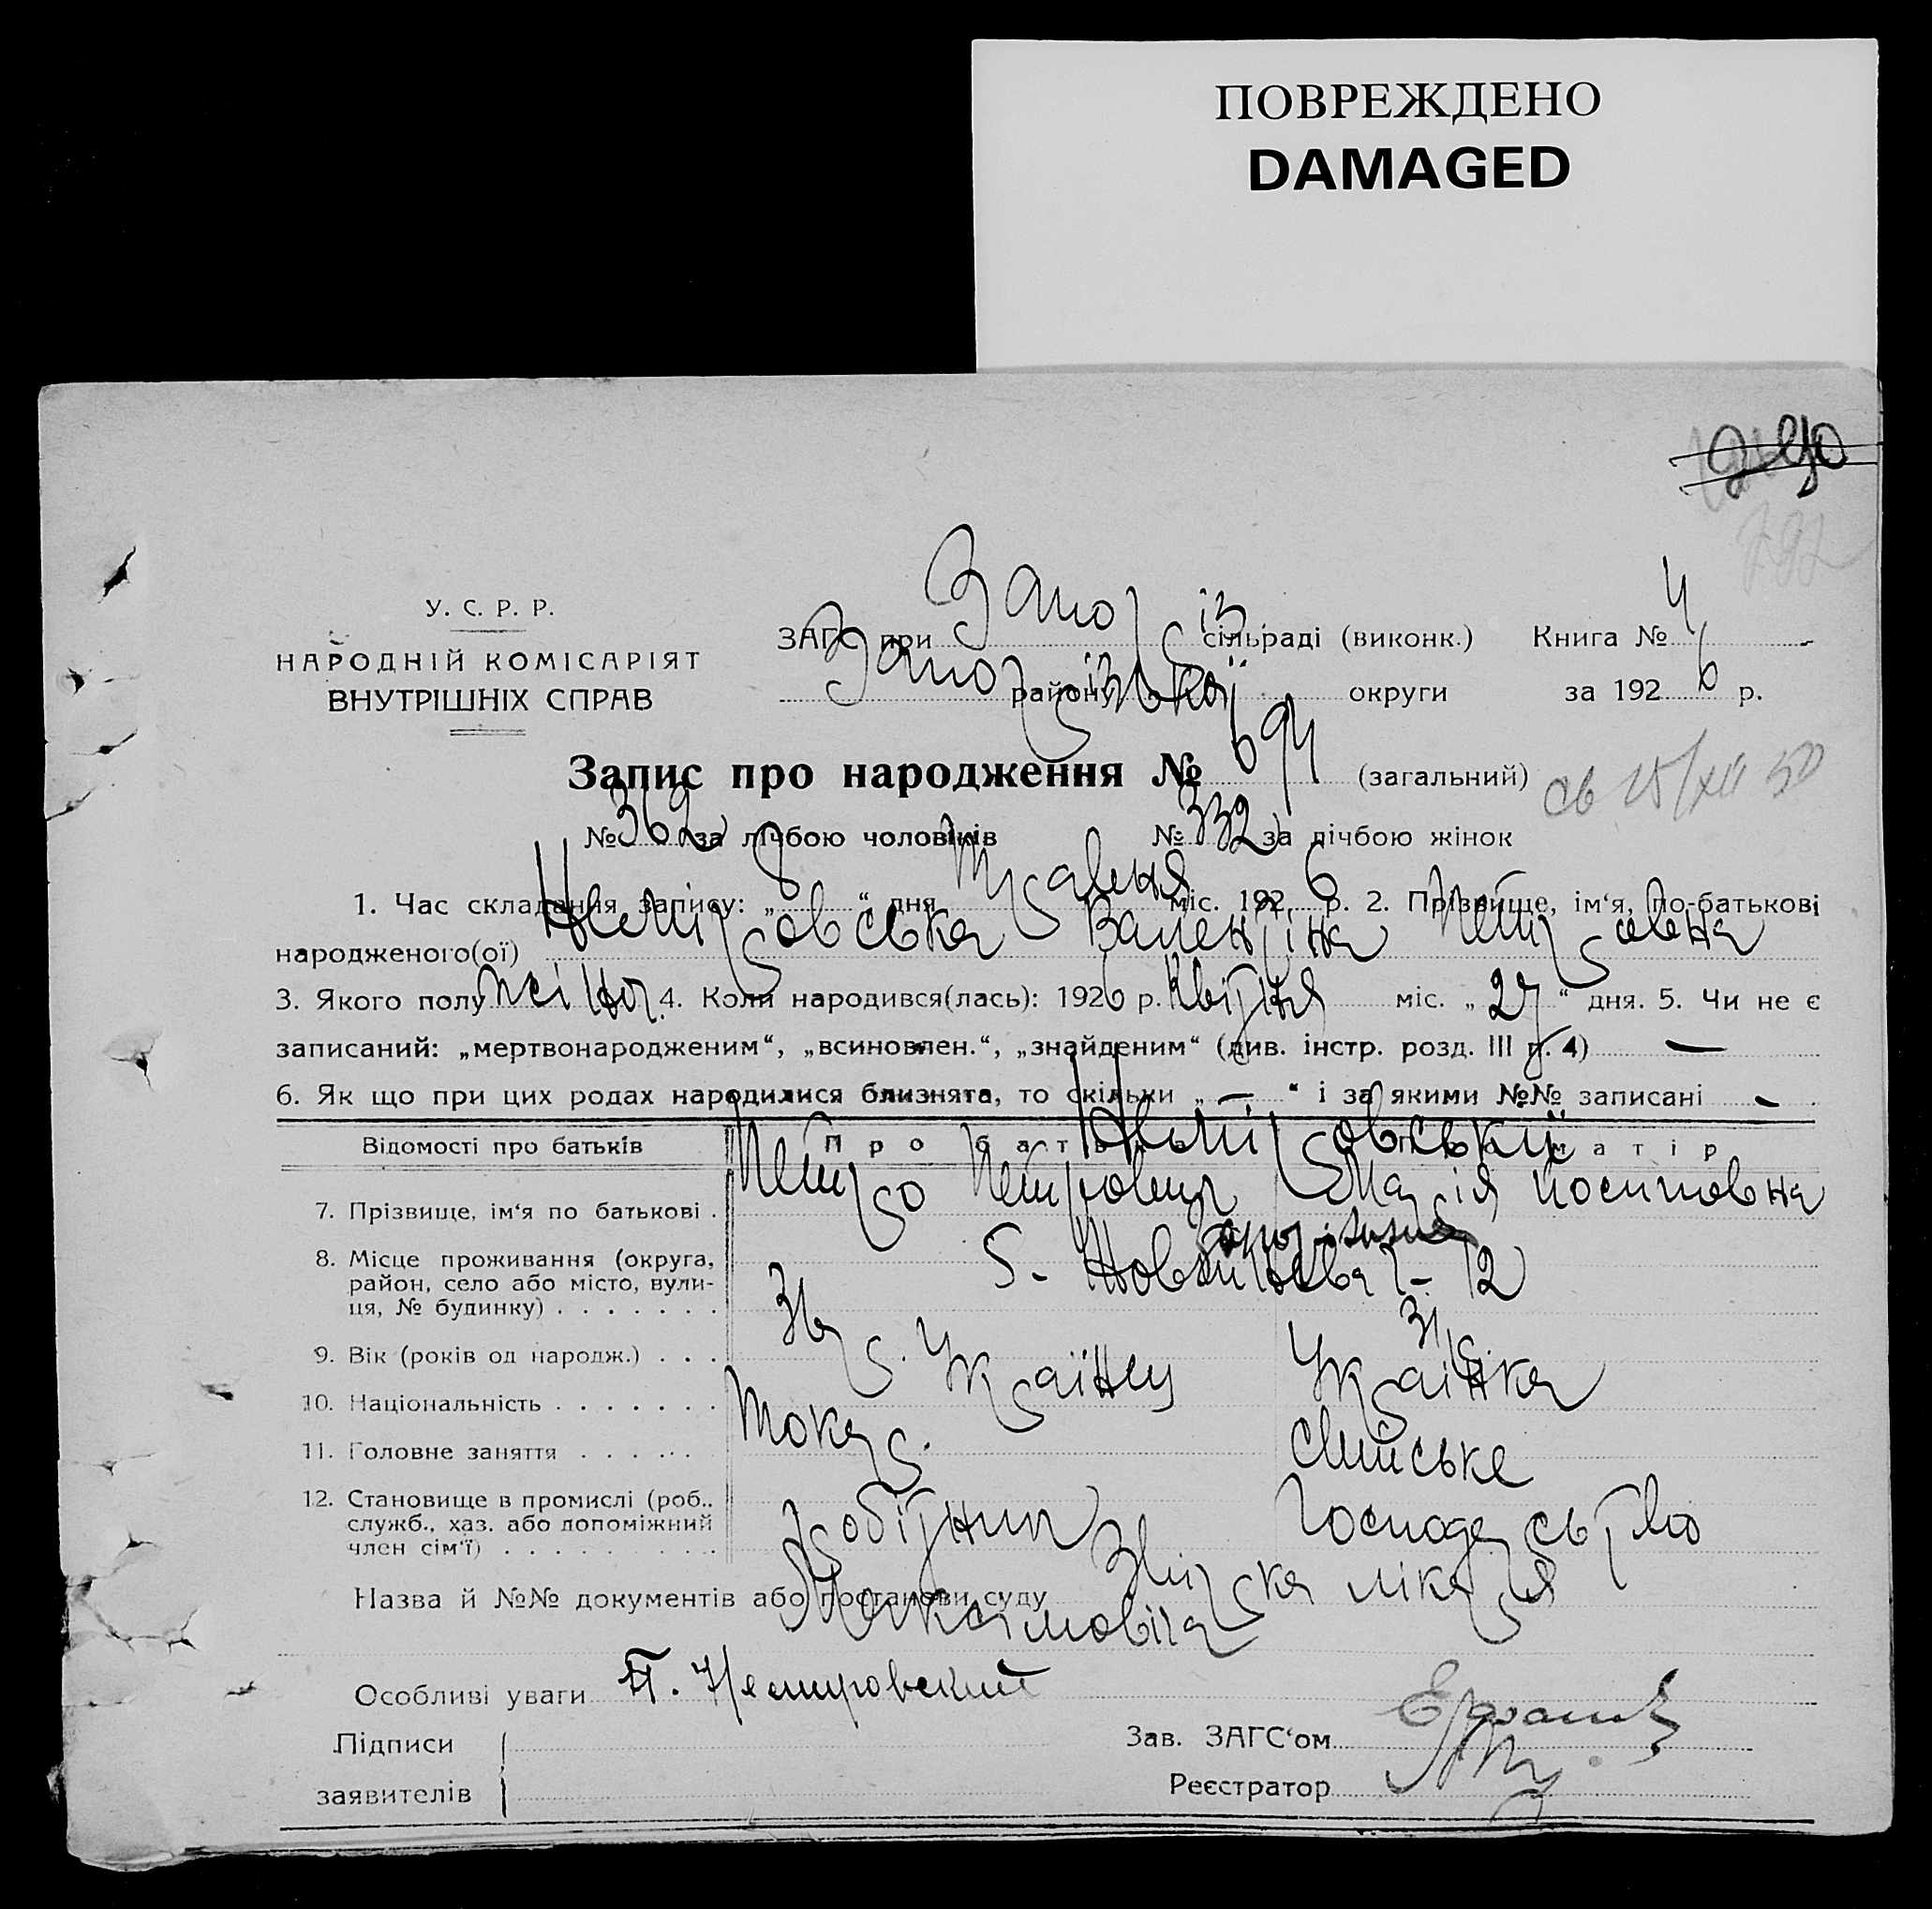 ПОВРЕЖДЕНО
DAMAGED
У. С. Р. Р.
НАРОДНІЙ КОМІСАРІЯТ
ВНУТРІШНІХ СПРАВ
ЗАГС при Запоріз. сільраді (виконк.) Книга № 4
Запорізької району округи за 1926 р.
Запис про народження № 694 (загальний)
св 15/XII 50
№ 362 за лічбою чоловіків № 332 за лічбою жінок
1. Час складання запису: „8“ дня Травня міс. 1926 р. 2. Прізвище, ім‘я, по-батькові
народженого(ої) Немировська Валентіна Петровна
3. Якого полу жіноч. 4. Коли народився(лась): 1926 р. Квітня міс. „27“ дня. 5. Чи не є
записаний: „мертвонародженим“, „всиновлен.“, „знайденим“ (див. інстр. розд. III п. 4) —
6. Як що при цих родах народилися близнята, то скільки „—“ і за якими №№ записані —
Відомості про батьків Про батька Про матір
Неміровські
7. Прізвище, ім‘я по батькові . Петро Петрович Марія Йосиповна
8. Місце проживання (округа, район, село або місто, вулиця, № будинку) Запоріжжя
12
9. Вік (років од народж.) . . . 31 р. 31 р.
10. Національність . . . . . . . Українец Українка
11. Головне заняття . . . . . . Токар.
12. Становище в промислі (роб., служб., хаз. або допоміжний член сім‘ї) . . . . . . . . . Робітник господарство
Назва й №№ документів або постанови суду лікаря
Максимовіча
Особливі уваги П. Немировский
Підписи
заявителів
Зав. ЗАГС‘ом
Реєстратор